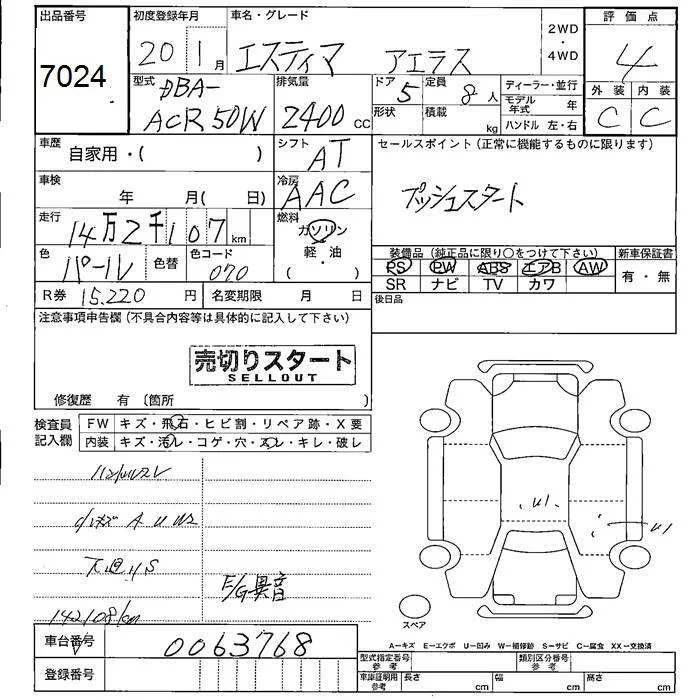 出品番号
7024
初度登録年月
20 1月
車名・グレード
エスティマ アエラス
2WD
・
4WD
評価点
4
外装 内装
C C
型式
DBA-
ACR50W
排気量
2400 CC
ドア
5
形状
定員
8人
積載
kg
ディーラー・並行
モデル年式 年
ハンドル 左・右
車歴
自家用・( )
シフト
AT
車検
年 月( 日)
冷房
AAC
走行
14万2千107km
燃料
ガソリン
軽・油
( ・ )
色
パール
色替
色コード
070
R券 15,220円
名変期限 月 日
セールスポイント(正常に機能するものに限ります)
プッシュスタート
装備品(純正品に限り○をつけて下さい)
PS PW ABS エアB AW
SR ナビ TV カワ
新車保証書
有・無
後日品
注意事項申告欄(不具合内容等は具体的に記入して下さい)
売切りスタート
SELLOUT
修復歴 有〔箇所 〕
検査員記入欄
FW キズ・飛石・ヒビ割・リペア跡・X要
内装 キズ・汚レ・コゲ・穴・スレ・キレ・破レ
小キズ A U W2
下廻りS
E/G異音
142108km
U1
U1
スペア
A−キズ E−エクボ U−凹み W−補修跡 S−サビ C−腐食 XX−交換済
車台番号
0063768
登録番号
型式指定番号参考
類別区分番号参考
車庫証明用参考
長さ cm
幅 cm
高さ cm